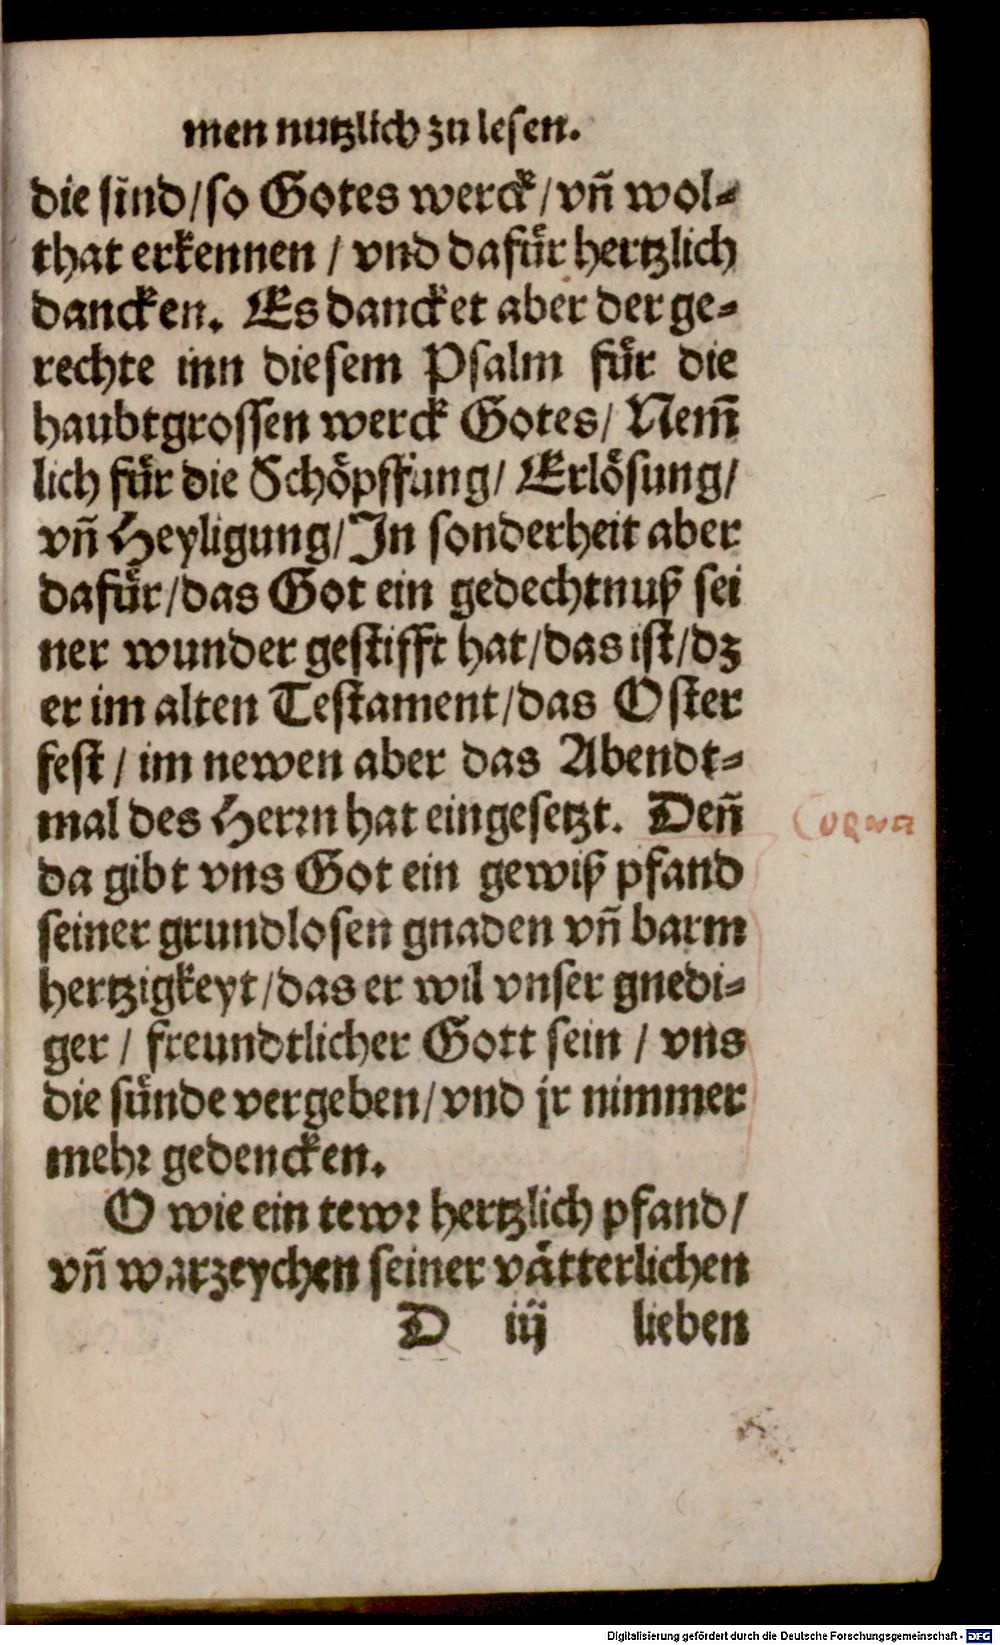 men nutzlich zu lesen.
die sind/so Gotes werck/vn̄ wol⸗
that erkennen / vnd dafuͤr hertzlich
dancken. Es dancket aber der ge⸗
rechte inn diesem Psalm fuͤr die
haubtgrossen werck Gotes/ Nem̄
lich fuͤr die Schoͤpffung/ Erloͤsung/
vn̄ Heyligung/ Jn sonderheit aber
dafuͤr/das Got ein gedechtnuß sei
ner wunder gestifft hat/das ist/dz
er im alten Testament/das Oster
fest / im newen aber das Abendt⸗
mal des Herrn hat eingesetzt. Den̄
da gibt vns Got ein gewiß pfand
seiner grundlosen gnaden vn̄ barm
hertzigkeyt/das er wil vnser gnedi⸗
ger / freundtlicher Gott sein / vns
die suͤnde vergeben/vnd jr nimmer
mehr gedencken.
O wie ein tewr hertzlich pfand/
vn̄ warzeychen seiner vaͤtterlichen
D iij lieben
Digitalisierung gefördert durch die Deutsche Forschungsgemeinschaft - DFG